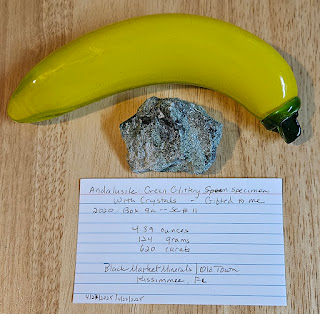 Andalusite Green Glittery Green specimen
with Crystals - Gifted to me
2020 - Box 9a -- Scf# 11
4.39 ounces
124 grams
620 carats
Black Market Minerals | Old Town
Kissimmee, FL